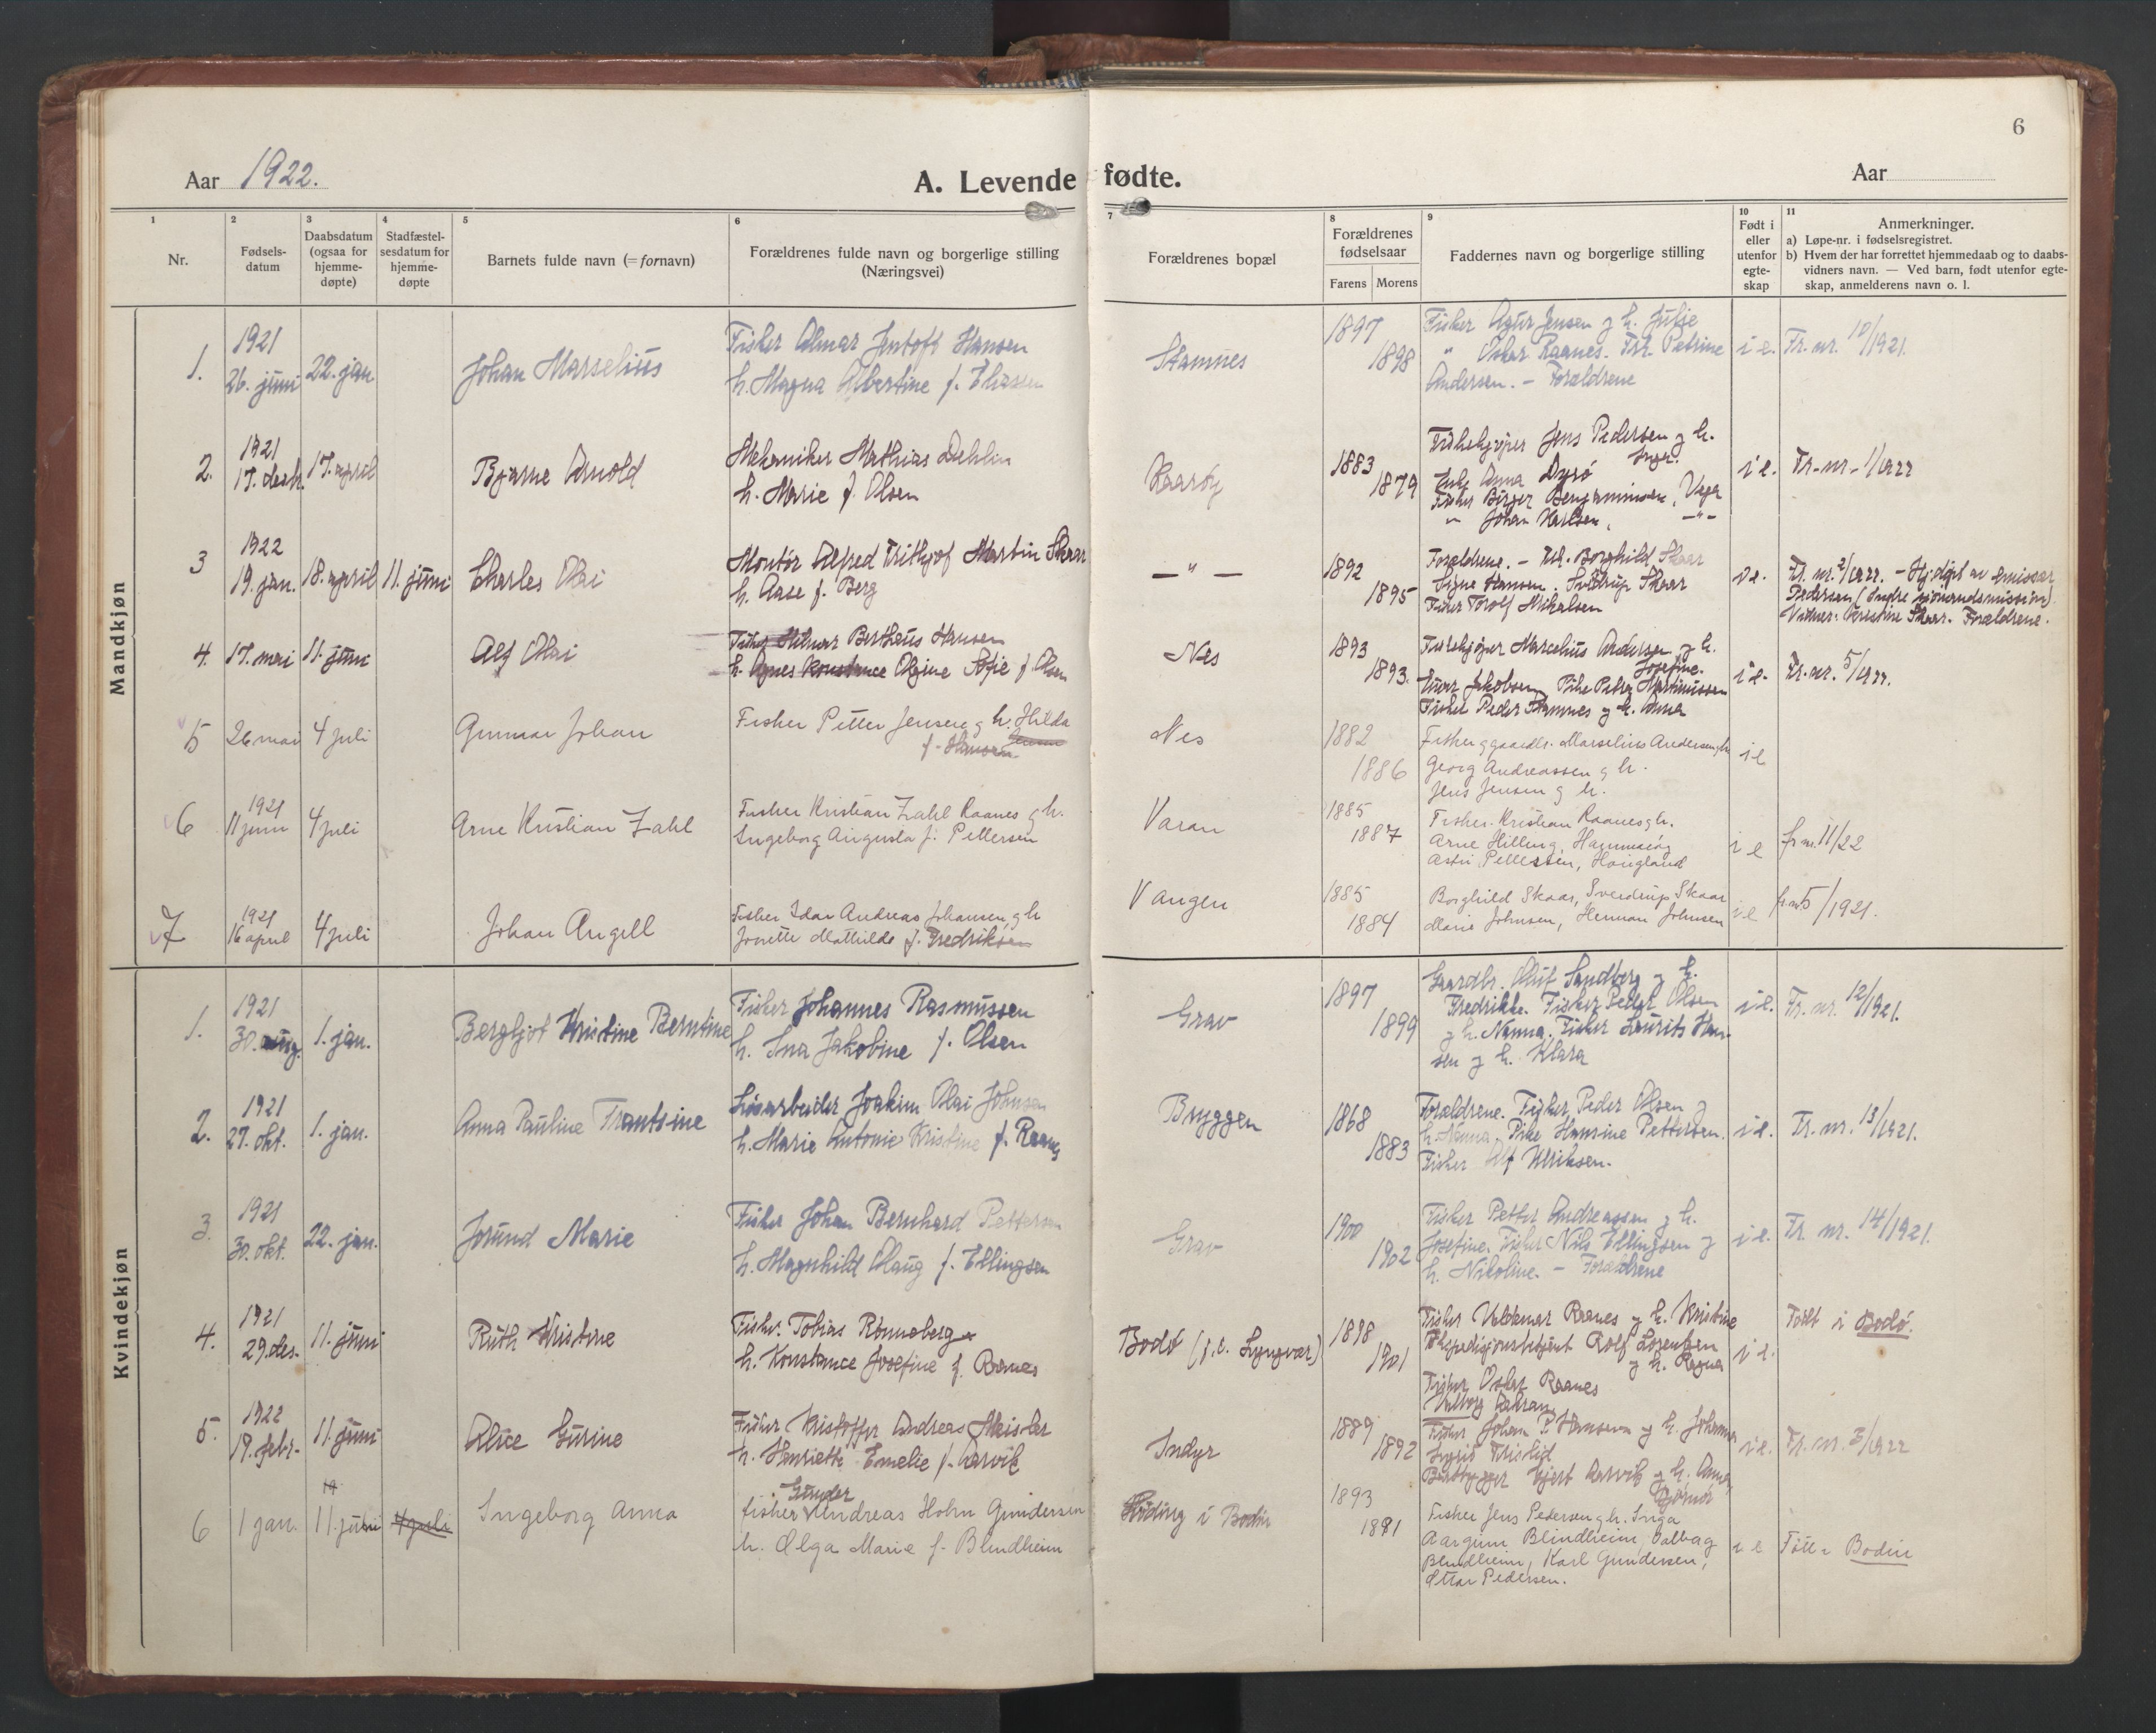 6
Aar 1922.
A. Levende fødte.
Aar
1 2 3 4 5 6 7 8 9 10 11
Nr.
Fødsels-
datum
Daabsdatum
(ogsaa for
hjemme-
døpte)
Stadfæstel-
sesdatum for
hjemme-
døpte
Barnets fulde navn (= fornavn)
Forældrenes fulde navn og borgerlige stilling
(Næringsvei)
Forældrenes bopæl
Forældrenes
fødselsaar
Farens Morens
Faddernes navn og borgerlige stilling
Født i
eller
utenfor
egte-
skap
Anmerkninger.
a) Løpe-nr. i fødselsregistret.
b) Hvem der har forrettet hjemmedaab og to daabs-
vidners navn. — Ved barn, født utenfor egte-
skap, anmelderens navn o. l.
Mandkjøn
1. 1921
26. juni 22. jan. Johan Marselius
Fisker Almar Jentoft Hansen
h. Magna Albertine f. Eliassen
Stamnes
1897
1898
Fisker Agur Jensen og h. Julie
" Oskar Raanes. Frk. Petrine
Andersen. – Forældrene
i e. Fr. nr. 10/1921.
2. 1921
17. desb. 17. april Bjarne Arnold
Mekaniker Mathias Dehlin
h. Marie f. Olsen
Kaarøy
1883
1879
Fiskekjøper Jens Pedersen og h.
Inga.
Anna Dyrø
Fisker Birger Benjaminsen, Vega
" Johan Karlsen, –"–
i e. Fr.-nr.- 1/1922
3 1922
19. jan. 18. april 11. juni Charles Olai
Montør Alfred Frithjof Martin Skaar
h. Aase f. Berg
– " –
1892
1895
Forældrene. – Borghild Skaar
Signe Hansen. Sverdrup Skaar
Fisker Torolf Mikalsen
i e. Fr. nr. 2/1922. – Hj.døpt av emissær
Pedersen (Indre sjømandsmission).
Vidner: Kristine Skaar. Forældrene.
4. 17. mai 11. juni Alf Olai
Fisker Hilmar Bertheus Hansen
h. Agnes Konstance Olgine Sofie f. Olsen
Nes
1893
1893.
Fiskekjøper Marselius Andersen og h.
Josefine.
Einar Jakobsen, Pike Petra Martinussen
Fisker Peder Stamnes og h. Anna
i e. Fr. nr. 5/1922.
5 26 mai 4 juli Gunnar Johan
Fisker Petter Jensen og h. Hilda
f. Hansen Jensen
Nes
1882
1886
Fisker og gaardbr. Marselius Andersen og h.
Georg Andreassen og h.
Jens Jensen og h.
i e
6 1921
11 juni 4 juli Arne Kristian Zahl
Fisker Kristian Zahl Raanes og h.
Ingeborg Augusta f. Pettersen
Varan
1885
1887
Fisker. Kristian Raanes og h.
Arne Hilling, Hammerøy
Astri Pettersen, Hougland
i e fr. nr. 11/22
7 1921
16 april 4 juli Johan Angell
Fisker Idar Andreas Johansen, og h
Jonette Mathilde f. Fredriksen
Vangen
1885
1884
Borghild Skaar, Sverdrup Skaar
Marie Johnsen, Herman Johnsen
i e fr. nr. 5/1921.
Kvindekjøn
1. 1921
30. aug. 1. jan. Bergljot Kristine Berntine
Fisker Johannes Rasmussen
h. Ina Jakobine f. Olsen
Grav
1897
1899
Gaardbr. Oluf Sandberg og h.
Fredrikke. Fisker Peder Olsen
og h. Nanna. Fisker Laurits Han-
sen og h. Klara
i e. Fr. nr. 12/1921.
2. 1921
27. okt. 1. jan. Anna Pauline Frantsine
Løsarbeider Joakim Olai Johnsen
h. Marie Antonie Kristine f. Raanes
Bryggen
1868
1883
Forældrene. Fisker Peder Olsen og
h. Nanna. Pike Hansine Pettersen.
Fisker Alf Ulriksen.
i e. Fr. nr. 13/1921.
3. 1921
30. okt. 22. jan. Jorund Marie
Fisker Johan Bernhard Pettersen
h. Magnhild Olaug f. Ellingsen
Grav
1900
1902
Fisker Petter Andreassen og h.
Josefine. Fisker Nils Ellingsen og
h. Nikoline. – Forældrene
i e. Fr. nr. 14/1921.
4. 1921
29. des. 11. juni Ruth Kristine
Fisker Tobias Rønneberg
h. Konstance Josefine f. Raanes
Bodø (f. e. Lyngvær)
1898
1901
Fisker Valdemar Raanes og h. Kristine
Ekspedisjonsbetjent Rolf Lorentzen
og h. Ragna
Fisker Oskar Raanes
Valborg
i e. Født i Bodø.
5. 1922
19. febr. 11. juni Alice Gurine
Fisker Kristoffer Andreas Meisler
h. Henriette Emelie f. Aarvik
Indyr
1889
1892
Fisker Johan P. Hansen og h. Johanna
Sigrid
Hjert Aarvik og h. Anna
i e. Fr. nr. 3/1922
6 1 jan. 11. juni 4 juli Ingeborg Anna
Gunder
fisker Andreas Holm Gundersen
h. Olga Marie f. Blindheim
Høding i Bodin
1893
1891
Fisker Jens Pedersen og h. Inga
Aargunn Blindheim, Valborg
Blindheim, Karl Gundersen,
Ottar Pedersen.
i e Født i Bodin